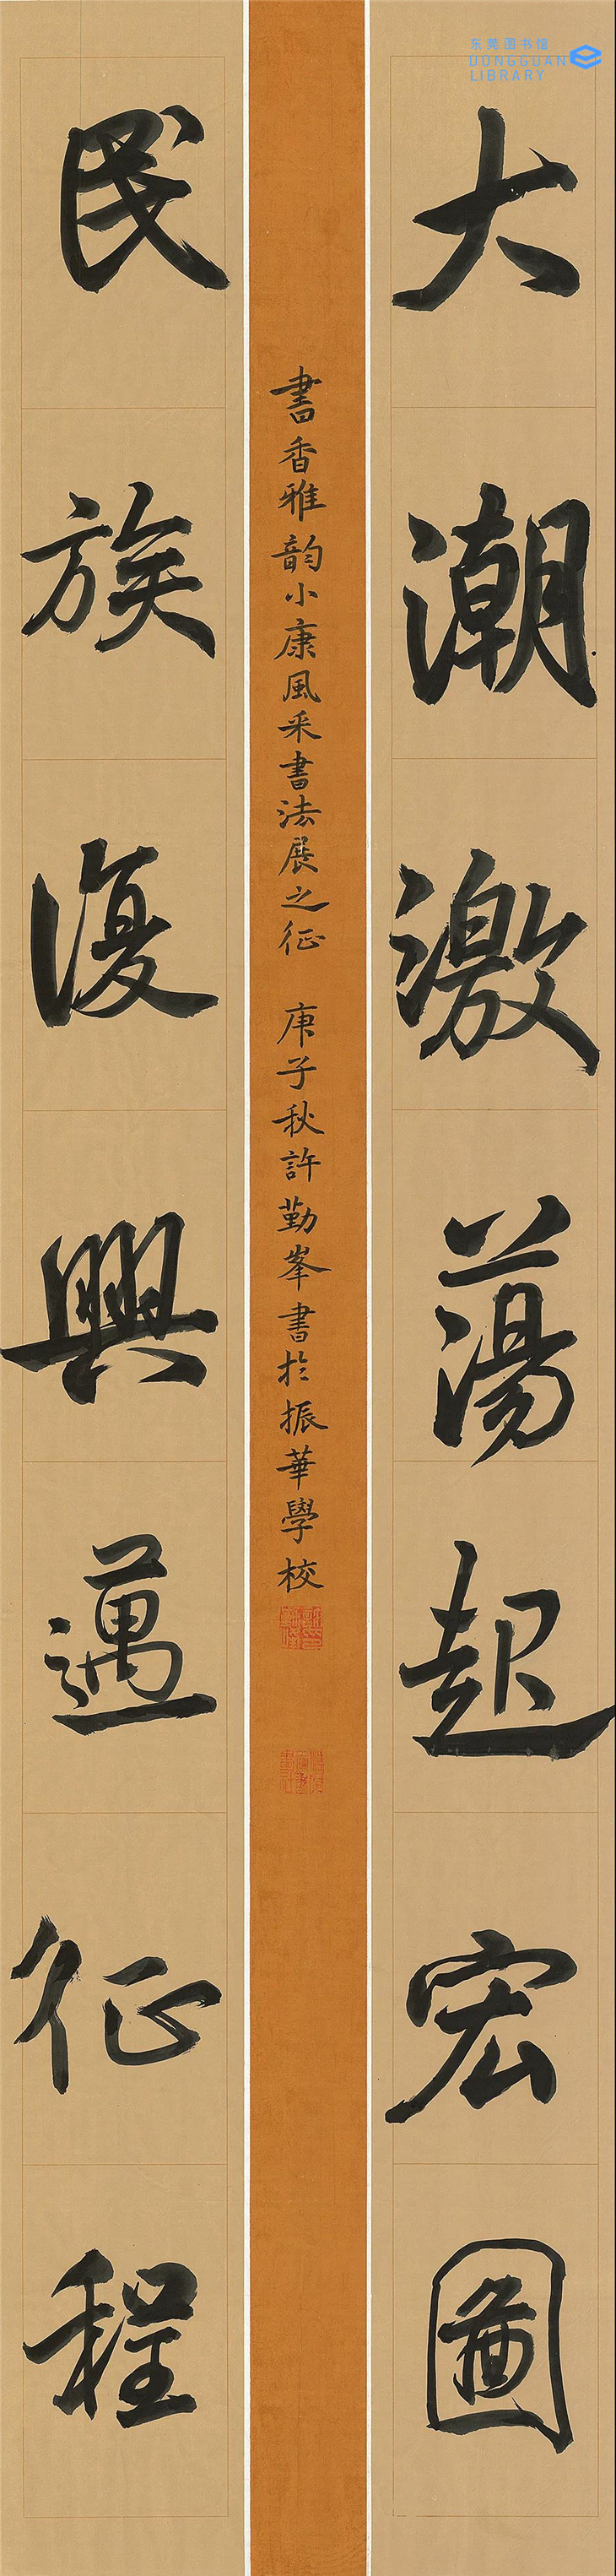 东莞图书馆
DONGGUAN
LIBRARY
大潮激荡起宏圖
書香雅韵小康風采書法展之征 庚子秋許勤峯書於振華學校
民族復興邁征程